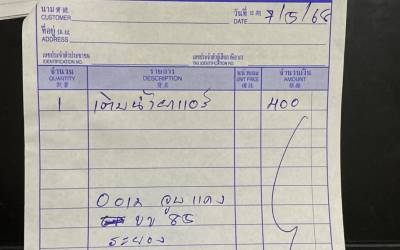 นาม 客名
CUSTOMER
วันที่ 日期 7/5/68
DATE
ที่อยู่ 住址
ADDRESS
เลขประจำตัวประชาชน
IDENTIFICATION NO.
เลขประจำตัวผู้เสียภาษีอากร
TAX IDENTIFICATION NO.
จำนวน รายการ หน่วยละ จำนวนเงิน
QUANTITY DESCRIPTION UNIT PRICE AMOUNT
1 เติมน้ำยาแอร์ 400
จูน แดง
ขข 85
ระยอง